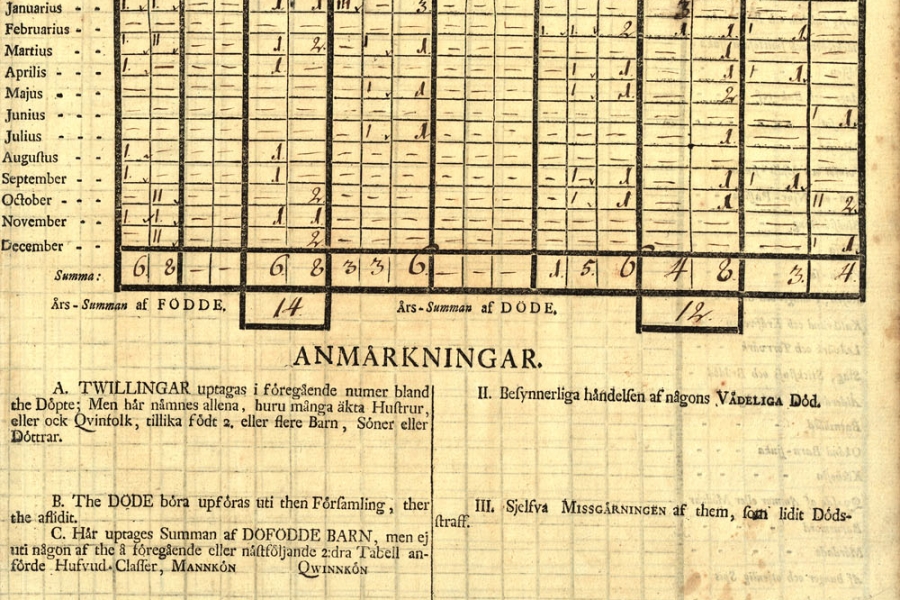 Januarius 1. 1. 1 1 III. 3 3
Februarius - - - - - - - - - - - 1. 1. 2 1 1 1 1.
Martius - - 1. II - - 1 2 - 1 1 - - - - - - - 1
Aprilis - - - 1. - - 1 - - - - - - - 1 1 - 1 1 1.
Majus - - - - - - - - - - 1 1 - - - 1 1 - 2
Junius - - 1.
Julius - - - 1 1 - 1
Augustus 1. - 1
September - - 1. - 1 - 1 1 - 1 1 1.
October - - II - 2 - 1 1 - 1 II 2.
November - - 1. 1. 1 1
December - - II 2 1 1.
Summa: 6. 8 - - 6. 8 3 3 6. - - - 1. 5. 6 4 8 3. 4.
Års-Summan af FÖDDE. 14 Års-Summan af DÖDE. 12.
ANMÄRKNINGAR.
A. TWILLINGAR uptagas i föregående numer bland
the Döpte; Men här nämnes allena, huru många äkta Hustrur,
eller ock Qvinfolk, tillika födt 2. eller flere Barn, Söner eller
Döttrar.
B. The DÖDE böra upföras uti then Församling, ther
the aflidit.
C. Här uptages Summan af DÖFÖDDE BARN, men ej
uti någon af the å föregående eller nästföljande 2:dra Tabell an-
förde Hufvud-Classer, MANNKÖN QWINNKÖN
II. Besynnerliga händelsen af någons VÅDELIGA Död.
III. Sjelfva MISSGÄRNINGEN af them, som lidit Döds-
straff.